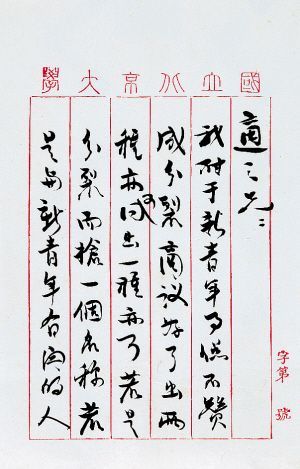 國立北京大學
適之兄：
我对于新青年事總不贊
成分裂商议好了出兩
種亦可出一種亦可若是
分裂而搶一個名称若
是与新青年有関的人
字第 號